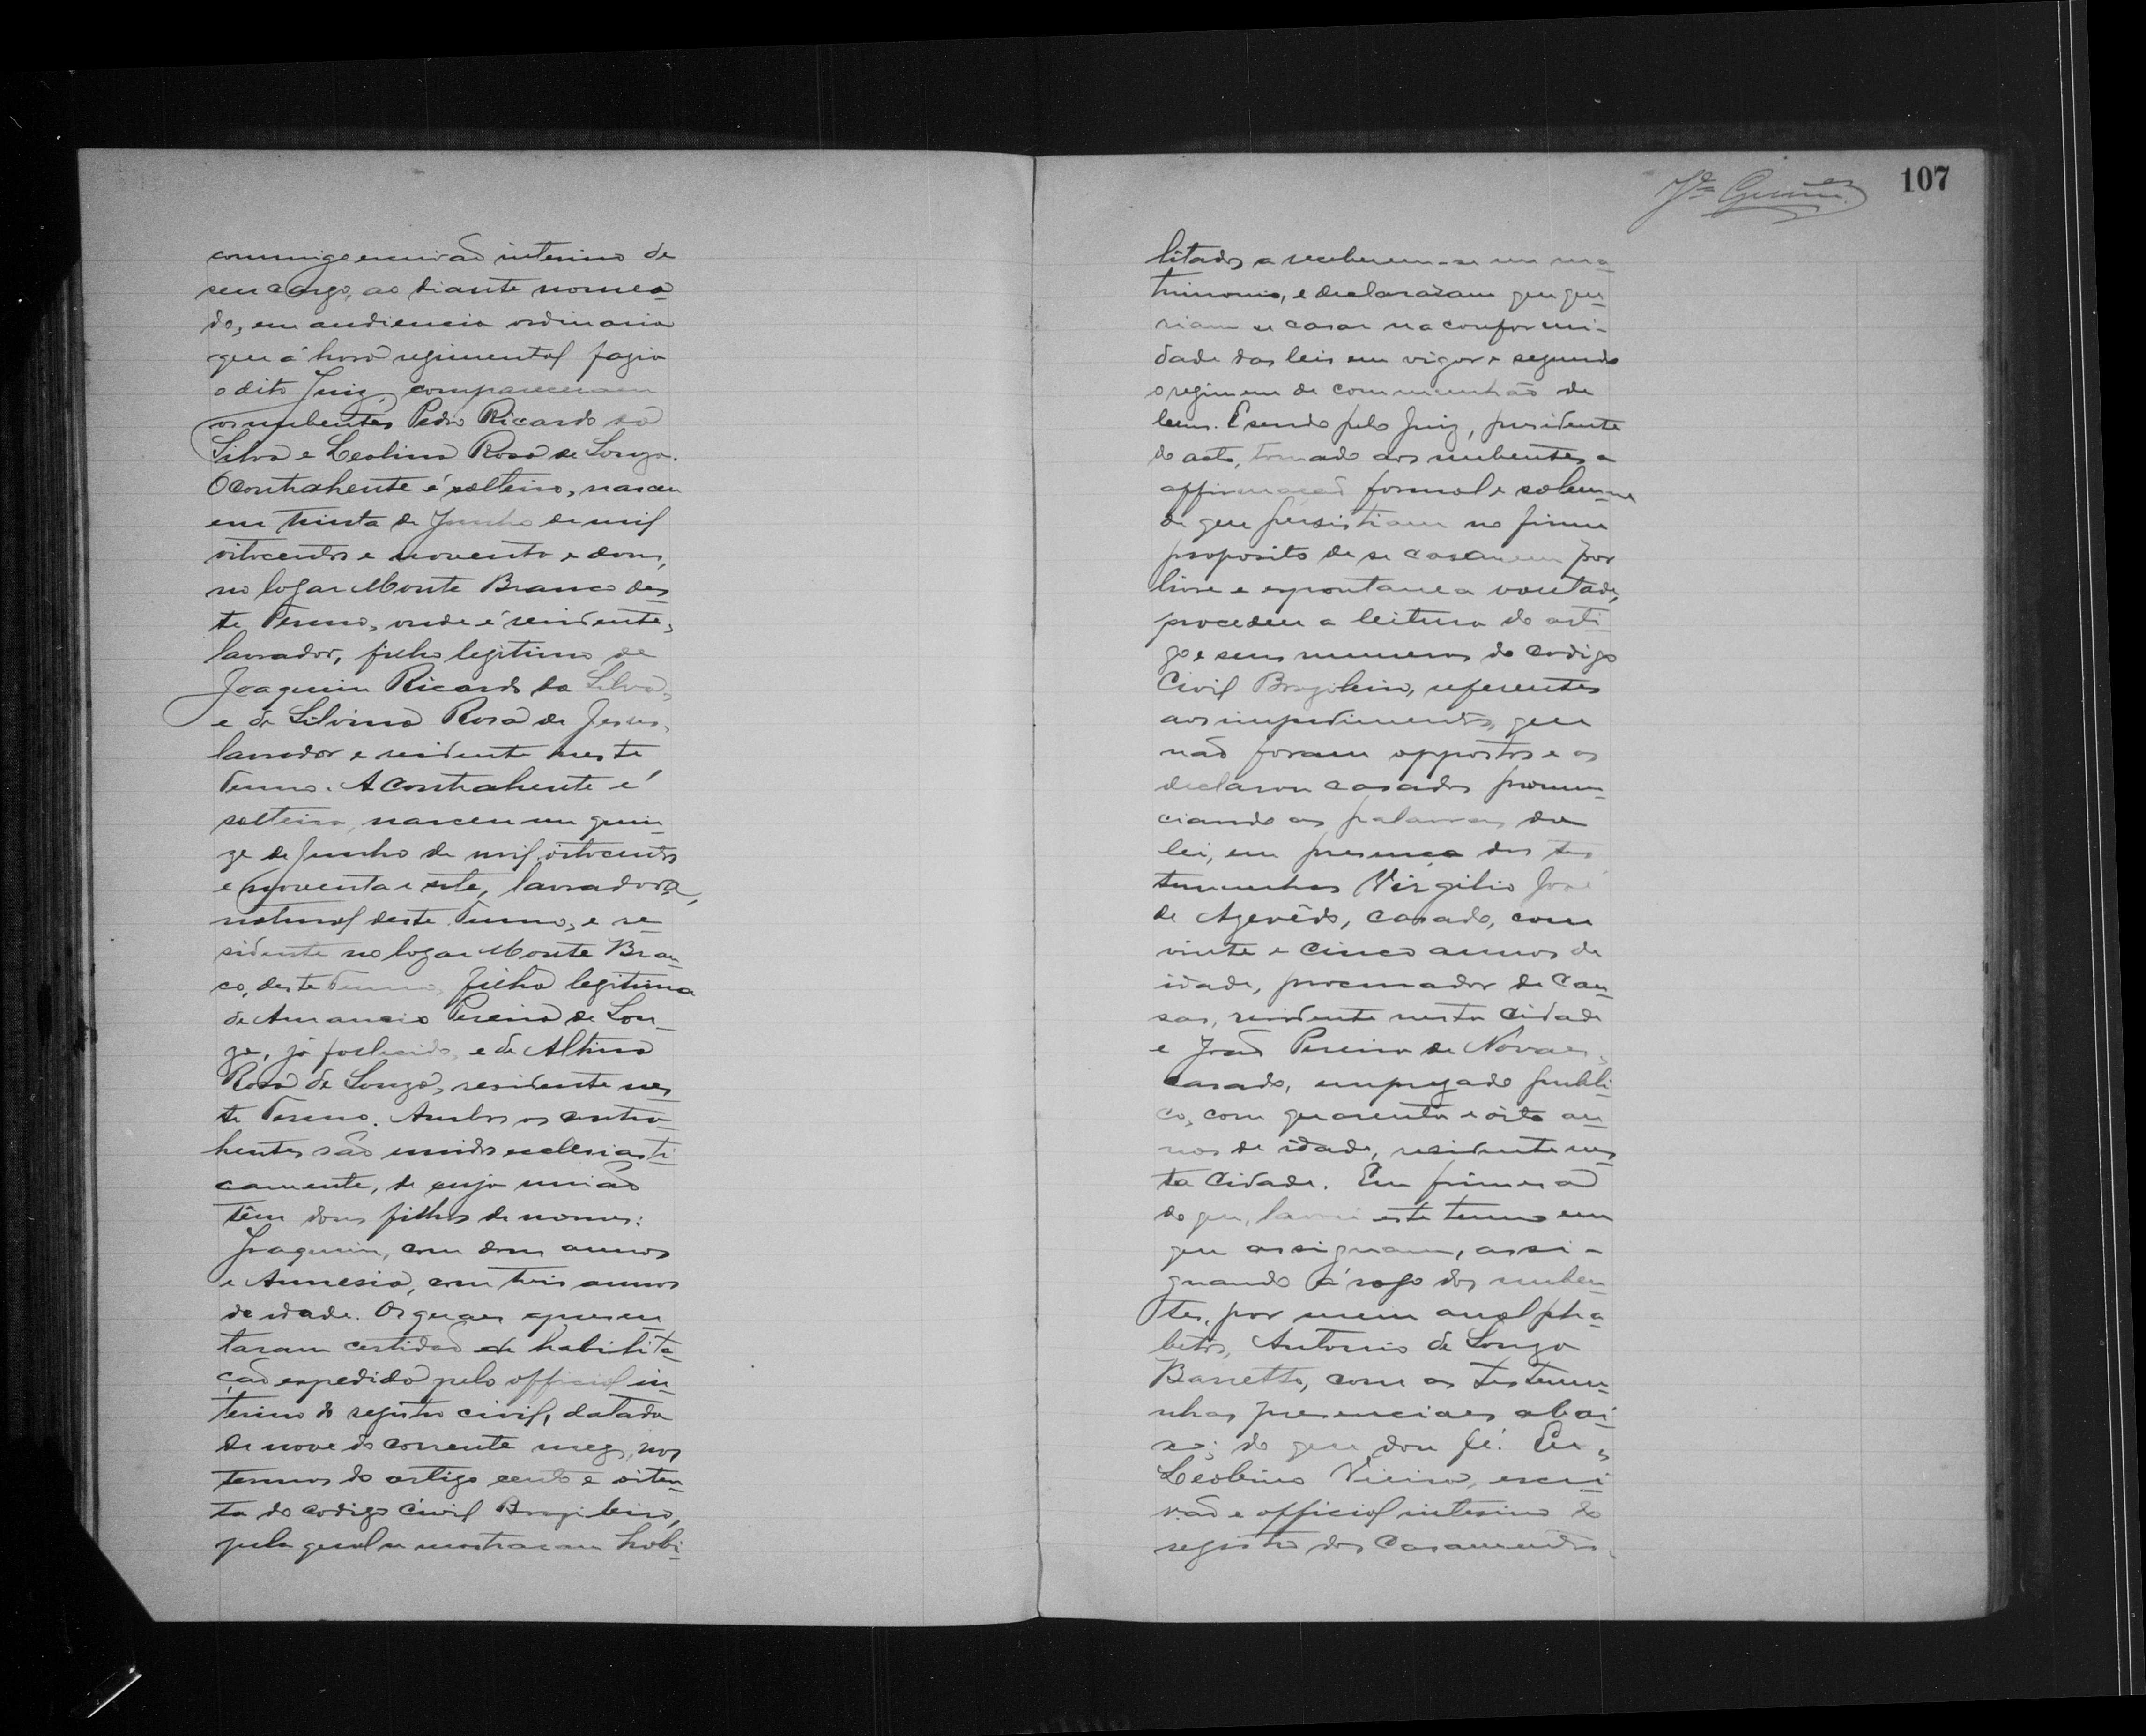 commigo escrivão interino de
seu cargo, ao diante nomea-
do, em audiencia ordinaria
que á hora regimental fazia
o dito Juiz, compareceram
os nubentes Pedro Ricardo da
Silva e Leolina Rosa de Souza.
O contrahente é solteiro, nasceu
em trinta de Junho de mil
oitocentos e noventa e dous,
no logar Monte Branco des-
te Termo, onde é residente,
lavrador, filho legitimo de
Joaquim Ricardo da Silva,
e de Silvina Rosa de Jesus,
lavrador e residente neste
Termo. A contrahente é
solteira, nasceu em quin-
ze de Junho de mil oitocentos
e noventa e sete, lavradora,
natural deste Termo, e re-
sidente no logar Monte Bran-
co, deste Termo, filha legitima
de Amancio Pereira de Sou-
za, já fallecido, e de Altina
Rosa de Souza, residente nes-
te Termo. Ambos os contra-
hentes são unidos ecclesiasti-
camente, de cuja união
têm dous filhos de nomes:
Joaquim, com dous annos
e Amnesia, com tres annos
de idade. Os quaes apresen-
taram certidão de habilita-
ção expedida pelo official in-
terino do registro civil, datada
de nove do corrente mez, nos
termos do artigo cento e oiten-
ta do codigo Civil Brazileiro,
pela qual se mostraram habi-
107
litados a receberem-se em ma-
trimonio, e declararam que que-
riam se casar na conformi-
dade das leis em vigor e segundo
o regimem de communhão de
bens. E sendo pelo Juiz, presidente
do acto, tomado aos nubentes a
affirmação formal e solemne
de que persistiam no firme
proposito de se casarem por
livre e espontanea vontade,
procedeu a leitura do arti-
go e seus numeros do Codigo
Civil Brazileiro, referentes
aos impedimentos, que
não foram oppostos e os
declarou casados pronun-
ciando as palavras da
lei, em presença das tes-
temunhas Virgilio José
de Azevêdo, casado, com
vinte e cinco annos de
idade, procurador de Cau-
sas, residente nesta Cidade
e João Pereira de Novaes,
casado, empregado publi-
co, com quarenta e oito an-
nos de idade, residente nes-
ta Cidade. Em firmeza
do que, lavrei este termo em
que assignam, assi-
gnando á rogo dos nuben-
tes, por serem analpha-
betos, Antonio de Souza
Barretto, com as testemu-
nhas presenciaes abai-
xo; do que dou fé. Eu,
Leolino Vieira, escri-
vão e official interino do
registro dos Casamentos.